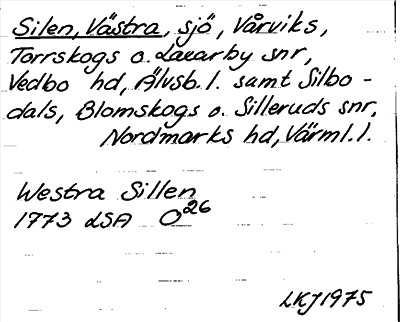 Silen, Västra, sjö, Vårviks,
Torrskogs o. Laxarby snr,
Vedbo hd, Älvsb. l. samt Silbo-
dals, Blomskogs o. Silleruds snr,
Nordmarks hd, Värml. l.
Westra Sillen
1773 LSA O26
LKJ 1975